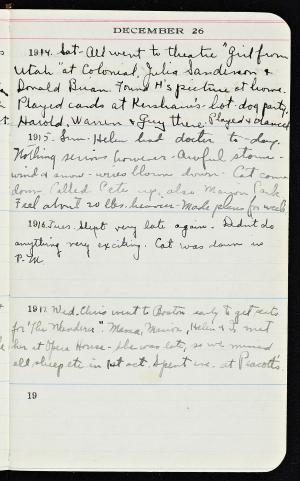 DECEMBER 26
1914. Sat. All went to theatre "Girl from
Utah" at Colonial, Julia Sanderson &
Donald Brian. Found H's picture at home.
Played cards at Kershaw's - hot dog party.
Harold, Warren & Guy there. Played & danced
1915. Sun. Helen had doctor to-day.
Nothing serious however. Awful storm -
wind & snow - wires blown down. Cat came
down. Called Pete up, also Marion Park
Feel about 20 lbs. heavier - Made plans for week.
1916. Tues. Slept very late again. Didn't do
anything very exciting. Cat was down in
P.M.
1917. Wed. Chris went to Boston early to get seats
for "The Wanderer." Mama, Marion, Helen & I met
her at Opera House - she was late, so we missed
all sheep etc in 1st act. Spent eve. at
19